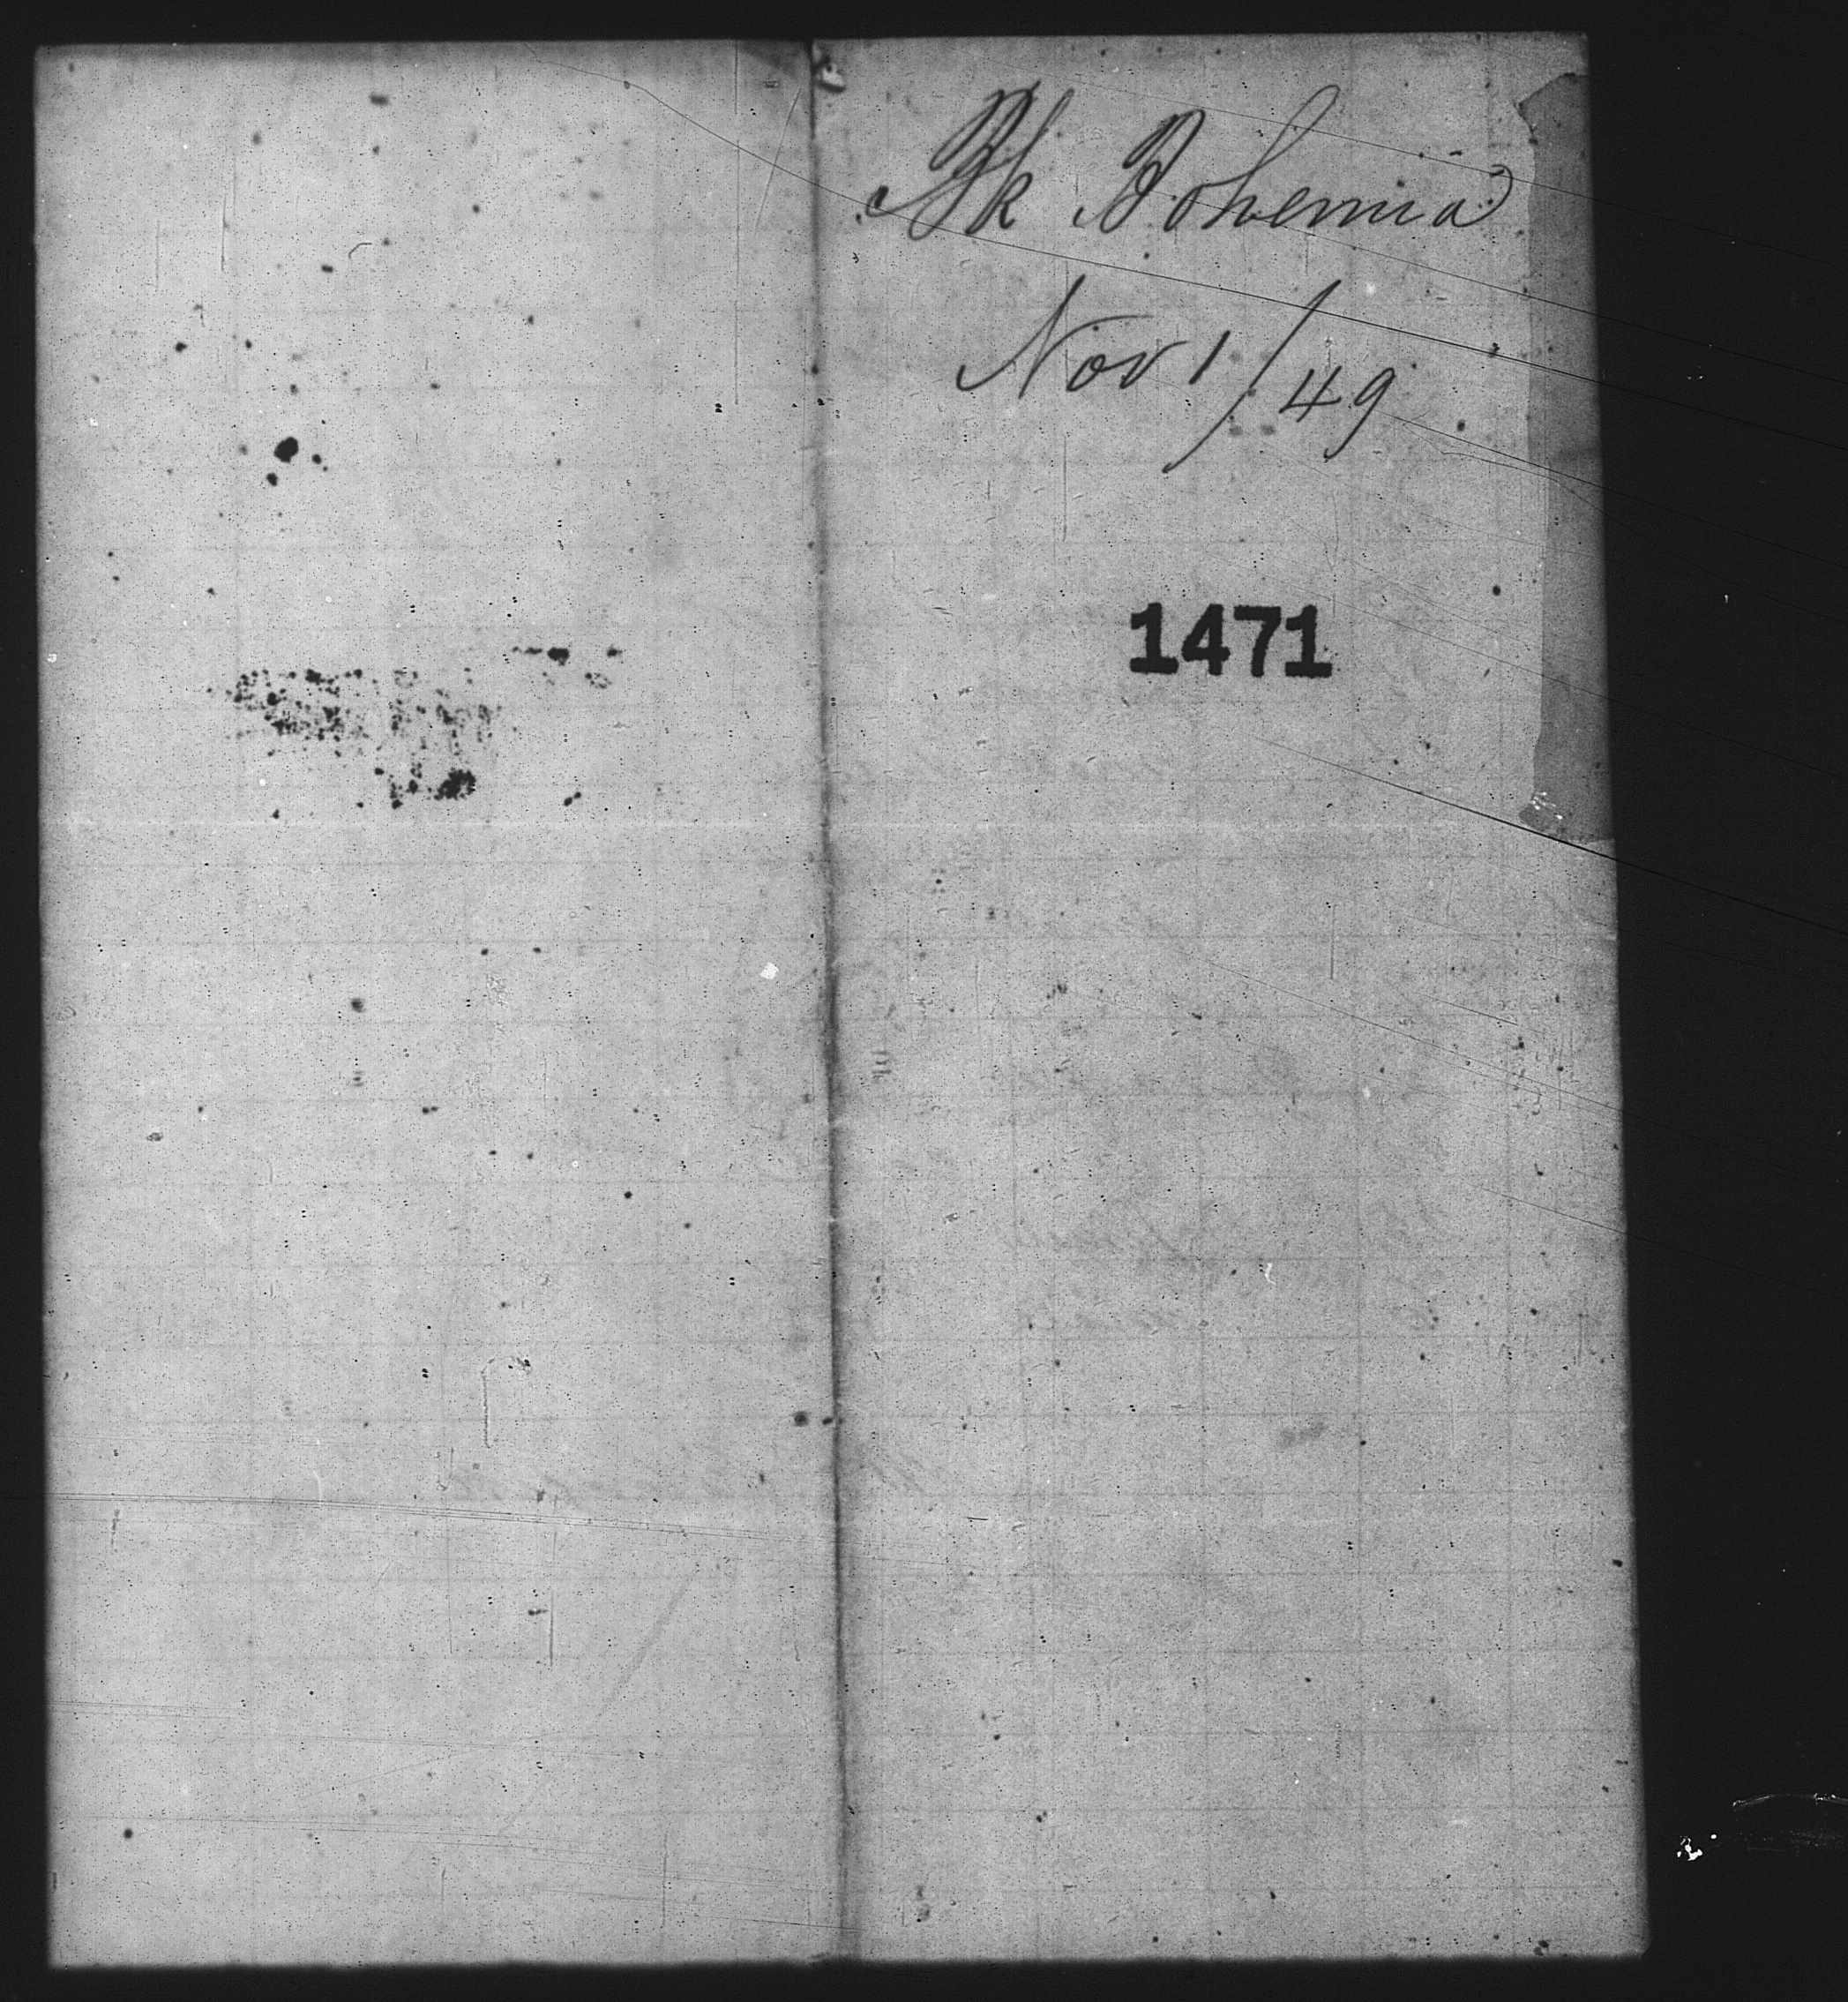 Bk Bohemia
Nov 1/49
1471